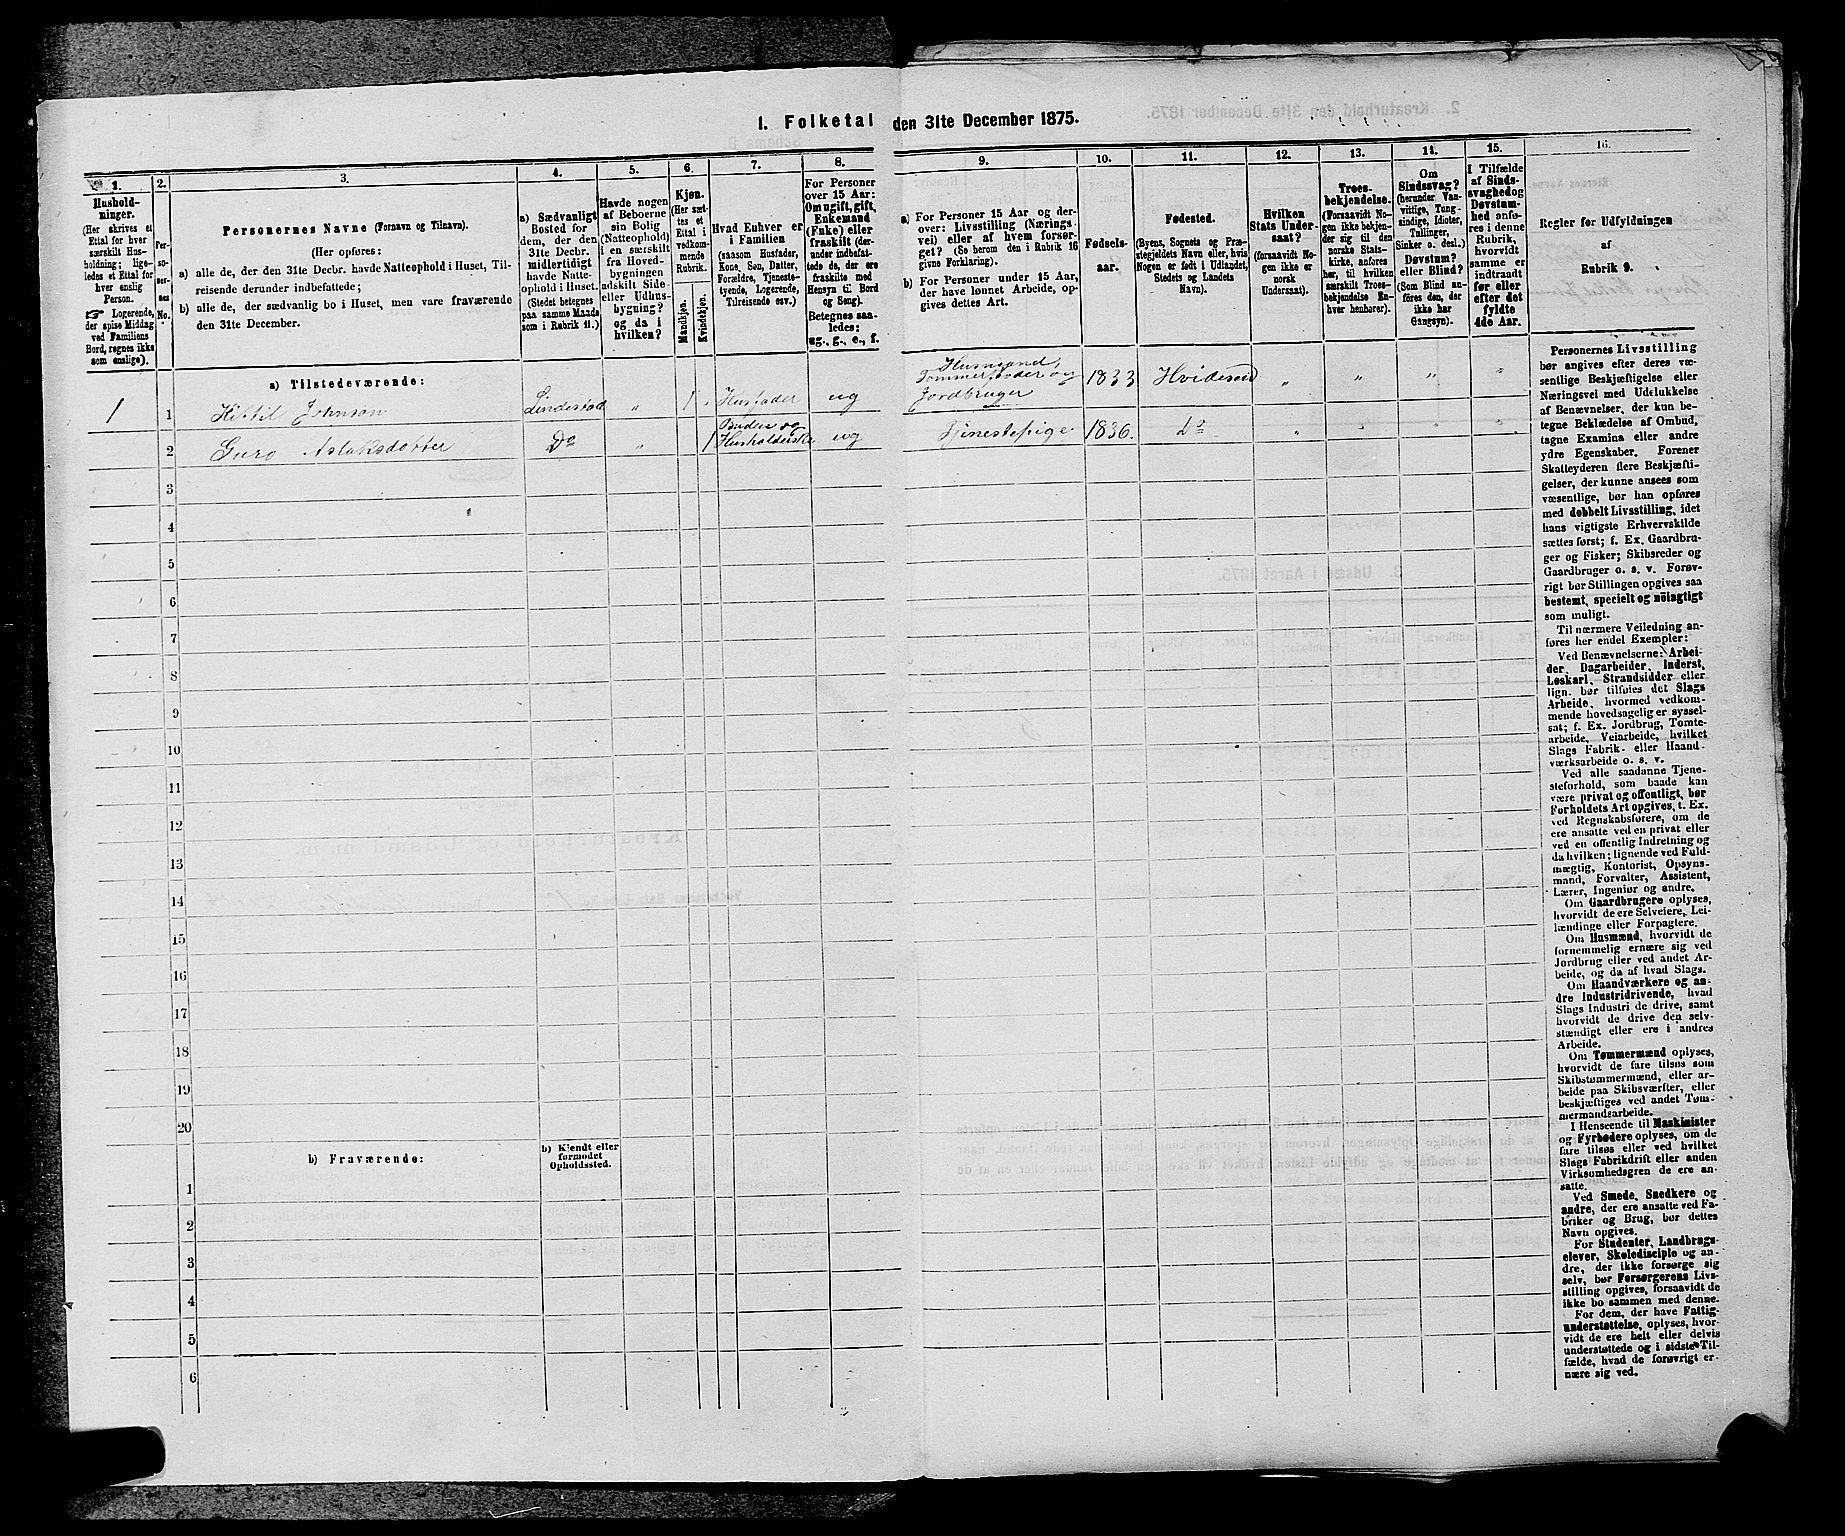 1. Folketal den 31te December 1875.
1.
Hushold-
ninger.
(Her skrives et
Ettal for hver
særskilt Hus-
holdning; lige-
ledes et Ettal for
hver enslig
Person.
Logerende,
der spise Middag
ved Familiens
Bord, regnes ikke
som enslige).
2.
Per-
so-
ner-
nes
No.
3.
Personernes Navne (Fornavn og Tilnavn).
(Her opføres:
a) alle de, der den 31te Decbr. havde Natteophold i Huset, Til-
reisende derunder indbefattede;
b) alle de, der sædvanlig bo i Huset, men vare fraværende
den 31te December.
4.
a) Sædvanligt
Bosted for
dem, der den
31te Decbr.
midlertidigt
havde Natte-
ophold i Huset.
(Stedet betegnes
paa samme Maade
som i Rubrik 11.)
5.
Havde nogen
af Beboerne
sin Bolig
(Natteophold)
i en særskilt
fra Hoved-
bygningen
adskilt Side-
eller Udhus-
bygning?
og da i
hvilken?
6.
Kjøn.
(Her sæt-
tes et
Ettal i
vedkom-
mende
Rubrik.
Mandkjøn.
Kvindekjøn.
7.
Hvad Enhver er
i Familien
(saasom Husfader,
Kone, Søn, Datter,
Forældre, Tjeneste-
tyende, Logerende,
Tilreisende osv.)
8.
For Personer
over 15 Aar:
Om ugift, gift,
Enkemand
(Enke) eller
fraskilt (der-
under indbefat-
tede de, der ere
fraskilte med
Hensyn til Bord
og Seng).
Betegnes saa-
ledes:
ug., g., e., f.
9.
a) For Personer 15 Aar og der-
over: Livsstilling (Nærings-
vei) eller af hvem forsør-
get? (Se herom den i Rubrik 16
givne Forklaring).
b) For Personer under 15 Aar,
der have lønnet Arbeide, op-
gives dettes Art.
10.
Fødsels-
aar.
11.
Fødested.
(Byens, Sognets og Præ-
stegjeldets Navn eller, hvis
Nogen er født i Udlandet,
Stedets og Landets
Navn).
12.
Hvilken
Stats Under-
saat?
(forsaavidt No-
gen ikke er
norsk
Undersaat).
13.
Troes-
bekjendelse.
(Forsaavidt No-
gen ikke bekjen-
der sig til den
norske Stats-
kirke, anføres
her, til hvilken
særskilt Troes-
bekjendelse En-
hver henhører).
14.
Om
Sindssvag?
(herunder Van-
vittige, Tung-
sindige, Idioter,
Tullinger,
Sinker o. desl.)
Døvstum?
eller Blind?
(Som Blind an-
føres den, der
ikke har
Gangsyn).
15.
I Tilfælde
af Sinds-
svaghed og
Døvstum-
hed anfø-
res i denne
Rubrik,
hvorvidt
samme er
indtraadt
før eller
efter det
fyldte
4de Aar.
16.
Regler for Udfyldningen
af
Rubrik 9.
a) Tilstedeværende:
1 1 Kittil Johnson Lindestad „ 1 Husfader ug Husmand, Tømmer og Jordbruger 1833 Hvideseid „ „ „ „
2 Guro Aslaksdatter Do „ 1 Husholderske ug Tjenestepige 1836. Do „ „ „ „
3
4
5
6
7
8
9
10
11
12
13
14
15
16
17
18
19
20
b) Fraværende:
b) Kjendt eller
formodet
Opholdssted.
1
2
3
4
5
6
Personernes Livsstilling
bør angives efter deres væ-
sentlige Beskjæftigelse eller
Næringsvei med Udelukkelse
af Benævnelser, der kun be-
tegne Beklædelse af Ombud,
tagne Examina eller andre
ydre Egenskaber. Forener
Skatteyderen flere Beskjæfti-
gelser, der kunne ansees som
væsentlige, bør han opføres
med dobbelt Livsstilling, idet
hans vigtigste Erhvervskilde
sættes først; f. Ex. Gaardbru-
ger og Fisker; Skibsreder og
Gaardbruger o. s. v. Forøv-
rigt bør Stillingen opgives saa
bestemt, specielt og nöiagtigt
som muligt.
Til nærmere Veiledning an-
føres her endel Exempler:
Ved Benævnelserne: Arbei-
der, Dagarbeider, Inderst,
Løskarl, Strandsidder eller
lign. bør tilføies det Slags
Arbeide, hvormed vedkom-
mende hovedsagelig er syssel-
sat; f. Ex. Jordbrug, Tomte-
arbeide, Veiarbeide, hvilket
Slags Fabrik- eller Haand-
værksarbeide o. s. v.
Ved alle saadanne Tjene-
steforhold, som baade kan
være privat og offentligt, bør
Forholdets Art opgives, t. Ex.
ved Regnskabsførere, om de
ere ansatte ved en privat eller
ved en offentlig Indretning og
da hvilken; lignende ved Fuld-
mægtig, Kontorist, Opsyns-
mand, Forvalter, Assistent,
Lærer, Ingeniør og andre.
Om Gaardbrugere oplyses,
hvorvidt de ere Selveiere, Lei-
lændinge eller Forpagtere.
Om Husmænd, hvorvidt de
fornemmelig ernære sig ved
Jordbrug eller ved andet Ar-
beide, og da af hvad Slags.
Om Haandværkere og an-
dre Industridrivende, hvad
Slags Industri de drive, samt
hvorvidt de drive den selv-
stændigt eller ere i andres
Arbeide.
Om Tømmermænd oplyses,
hvorvidt de fare tilsøs som
Skibstømmermænd, eller ar-
beide paa Skibsværfter, eller
beskjæftiges ved andet Tøm-
mermandsarbeide.
I Henseende til Maskinister
og Fyrbødere oplyses, om de
fare tilsøs eller ved hvilket
Slags Fabrikdrift eller anden
Virksomhedsgren de ere an-
satte.
Ved Smede, Snedkere og
andre, der ere ansatte ved Fa-
briker og Brug, bør dettes
Navn opgives.
For Studenter, Landbrugs-
elever, Skoledisciple og an-
dre, der ikke forsørge sig
selv, bør Forsørgerens Livs-
stilling opgives, forsaavidt de
ikke bo sammen med denne.
For dem, der have Fattig-
understøttelse, oplyses, hvor-
vidt de ere helt eller delvis
understøttede og i sidste Til-
fælde, hvad de forøvrigt er-
nære sig ved.